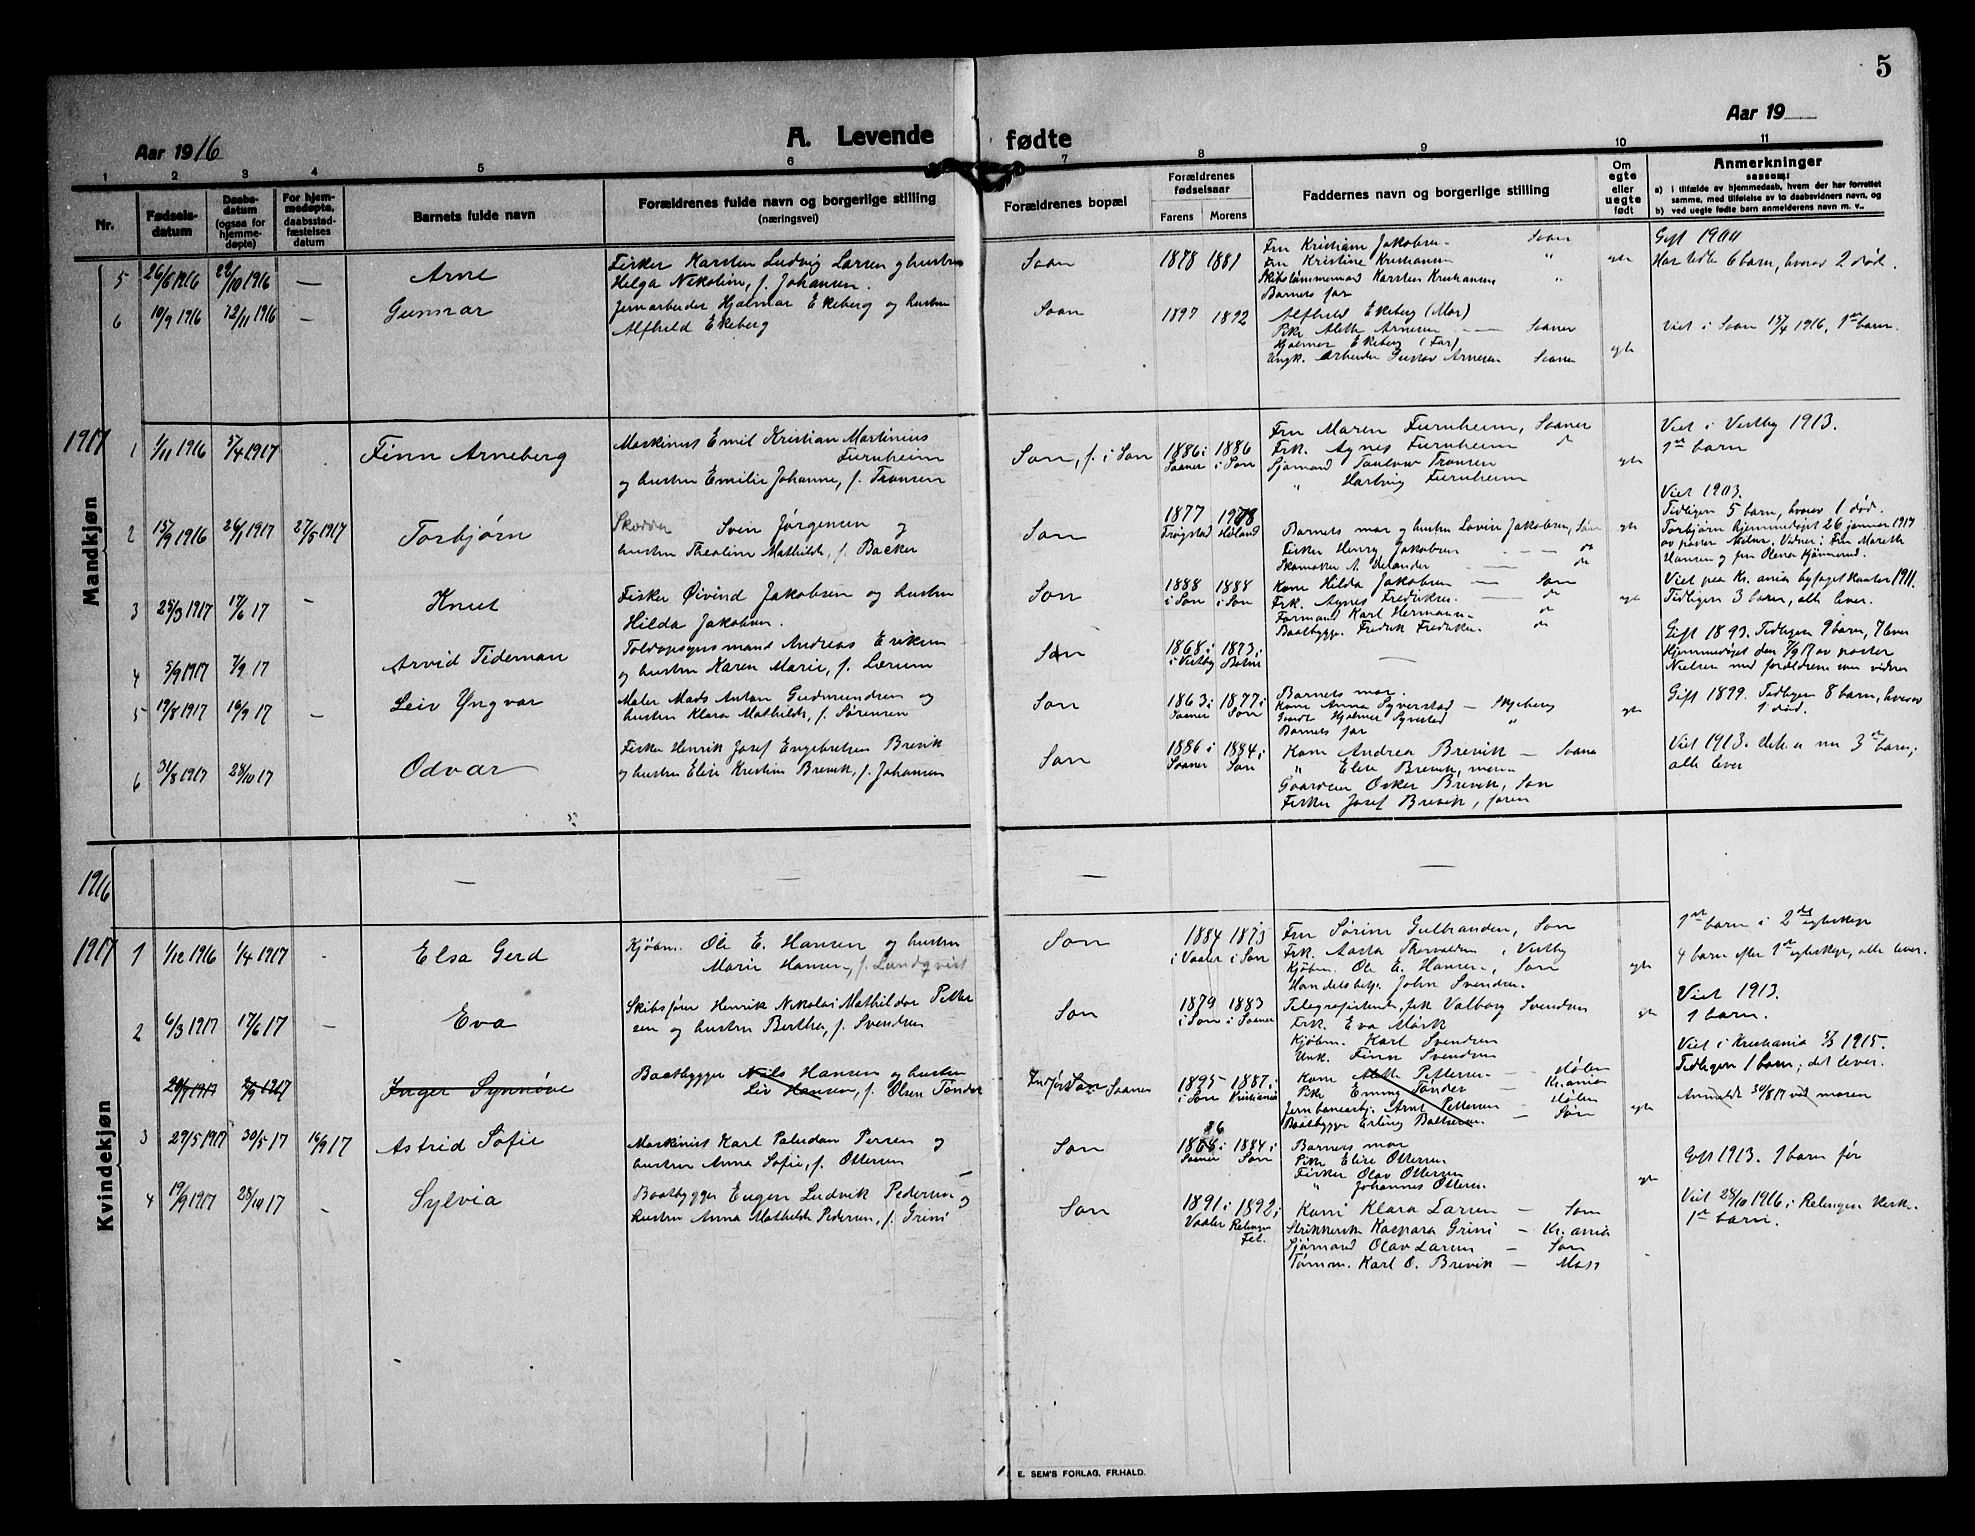 5
Aar 1916
A. Levende fødte
Aar 19
1 2 3 4 5 6 7 8 9 10 11
Nr.
Fødsels-
datum
Daabs-
datum
(ogsaa for
hjemme-
døpte)
For hjem-
medøpte,
daabsstad-
fæstelses
datum
Barnets fulde navn
Forældrenes fulde navn og borgerlige stilling
(næringsvei)
Forældrenes bopæl
Forældrenes
fødselsaar
Farens Morens
Faddernes navn og borgerlige stilling
Om
egte
eller
uegte
født
Anmerkninger
saasom:
a) i tilfælde av hjemmedaab, hvem der har forrettet
samme, med tilføielse av to daabsvidners navn, og
b) ved uegte fødte barn anmelderens navn m. v.,
Mandkjøn
5 26/6 1916 22/10 1916 — Arne
Fisker Karsten Ludvig Larsen og hustru
Helga Nikoline, f. Johansen.
Soon 1878 1881
Fru Kristiane Jakobsen Soon
Fru Kristine Kristiansen "
Karsten Kristiansen "
Barnets far
egte
Gift 1900
Har født 6 barn, hvorav 2 død.
6 10/9 1916 12/11 1916 — Gunnar
Jernarbeider Hjalmar Ekeberg og hustru
Alfhild Ekeberg
Soon 1897 1892
Alfhild Ekeberg (Mor)
Pike Aleth Arnesen — Soaner
Hjalmar Ekeberg (Far)
Ungk. Arbeider Gustav Arnesen Soaner
egte
Viet i Soon 15/4 1916, 1ste barn.
1917
1 1/11 1916 5/4 1917 Finn Arneberg
Maskinist Emil Kristian Martinius
Furnheim
og hustru Emilie Johanne, f. Fransen
Son, f. i Son
1886 i Soaner 1886 i Son
Fru Maren Furnheim, Soaner
Frk. Agnes Furnheim do
Sjømand Fransen
" Hartvig Furnheim
egte
Viet i Vestby 1913.
1ste barn
2 15/9 1916 26/1 1917 27/5 1917 Torbjørn
Sven Jørgensen og
hustru Theoline Mathilde, f. Backer
Son
1877 Trøgstad 1978 Høland
Barnets mor og hustru Lovise Jakobsen, Son
Fisker Henry Jakobsen — do
Skomaker A. Velander — do
egte
Viet 1903.
Tidligere 5 barn, hvorav 1 død.
Torbjørn hjemmedøpt 26 januar 1917
Vidner: Fru Mareth
Hansen og fru Olena
3 25/3 1917 17/6 17 — Knut
Fisker Øivind Jakobsen og hustru
Hilda Jakobsen.
Son
1888 i Son 1888 i Son
Kone Hilda Jakobsen — Son
Frk. Agnes Fredriksen — do
Formand Karl Hermansen do
Baatbygger Fredrik Fredriksen do
egte
Viet paa Kr.ania byfogetkontor 1911.
Tidligere 3 barn, alle lever.
4 5/9 1917 7/9 17 Arvid Tideman
Toldopsynsmand Andreas Eriksen
og hustru Karen Marie, f. Lærum
Son
1868 i Vestby 1873 i
—
Gift 1893. Tidligere 9 barn, 7 lever
Hjemmedøpt den 7/9 17 av pastor
Nielsen med forældrene som vidner
5 19/8 1917 16/9 17 — Leiv Yngvar
Maler Mads Anton Gudmundsen og
hustru Klara Mathilde, f. Sørensen
Son
1863 i Soaner 1877 i Son
Barnets mor.
Kone Anna Syverstad — Skjeberg
Hjalmar Syverstad "
Barnets far
egte
Gift 1899. Tidligere 8 barn, hvorav
1 død.
6 31/8 1917 28/10 17 Odvar
Fisker Henrik Josef Engebretsen Brevik
og hustru Elise Kristine Brevik, f. Johansen
Son
1886 i Soaner 1884 i Son
Kone Andrea Brevik — Soaner
" Elise Brevik, moren
Gaardeier Oskar Brevik, Son
Fisker Josef Brevik, faren
Viet 1913. dette er nu 3die barn;
alle lever
Kvindekjøn
1916 — — — —
1917
1 1/12 1916 1/4 1917 Elsa Gerd
Kjøbm. Ole E. Hansen og hustru
Marie Hansen, f. Lundqvist
Son
1884 i Vaaler 1873 i Son
Fru Sørine Gulbrandsen, Son
Frk. Aasta Thorvaldsen, Vestby
Kjøbm. Ole E. Hansen, Son
Handelsbetj. John Svendsen
egte
1ste barn i 2det egteskap
4 barn efter 1ste egteskap, alle lever.
2 6/3 1917 17/6 17 — Eva
Skibsfører Henrik Nikolai Mathildor Petter
sen og hustru Bertha, f. Svendsen
Son
1879 i Son 1883 i Soaner
Telegrafistinde, frk Valborg Svendsen
Frk. Eva Mørk
Kjøbm. Karl Svendsen
Unk. Finn Svendsen
egte
Viet 1913.
1 barn.
2/9 1917 Inger Synnøve
Baatbygger Nils Hansen og hustru
Liv Hansen, f. Olsen Tønder
Son Soaner
1895 i Son 1887 i Kristiania
Kone Aleth Pettersen — Hølen
Pike Emmy Tønder — Kr.ania
Jernbanearb. Arnt Pettersen — Hølen
Baatbygger Erling — Son
egte
Viet i Kristiania 5/3 1915.
Tidligere 1 barn; det lever.
Anmeldt 30/8 17 ved moren
3 29/5 1917 30/5 17 16/9 17 Astrid Sofie
Maskinist Karl Paludan Persen og
hustru Anna Sofie, f. Ottersen
Son
1886 i Soaner 1884 i Son
Barnets mor
Pike Elise Ottersen
Fisker Olav Ottersen
" Johannes Ottersen
egte
Gift 1913. 1 barn før
4 19/9 1917 28/10 17 — Sylvia
Baatbygger Eugen Ludvik Pedersen og
hustru Anna Mathilde Pedersen, f. Grini
Son
1891 i Vaaler 1892 i Relingen Fet.
Kone Klara Larsen — Son
Strikkerske Kaspara Grini — Kr.ania
Sjømand Olav Larsen — Son
Tømm. Karl O. Brevik — Moss
Viet 28/10 1916 i Relingen kirke.
1ste barn.
E. SEM'S FORLAG, FR.HALD.